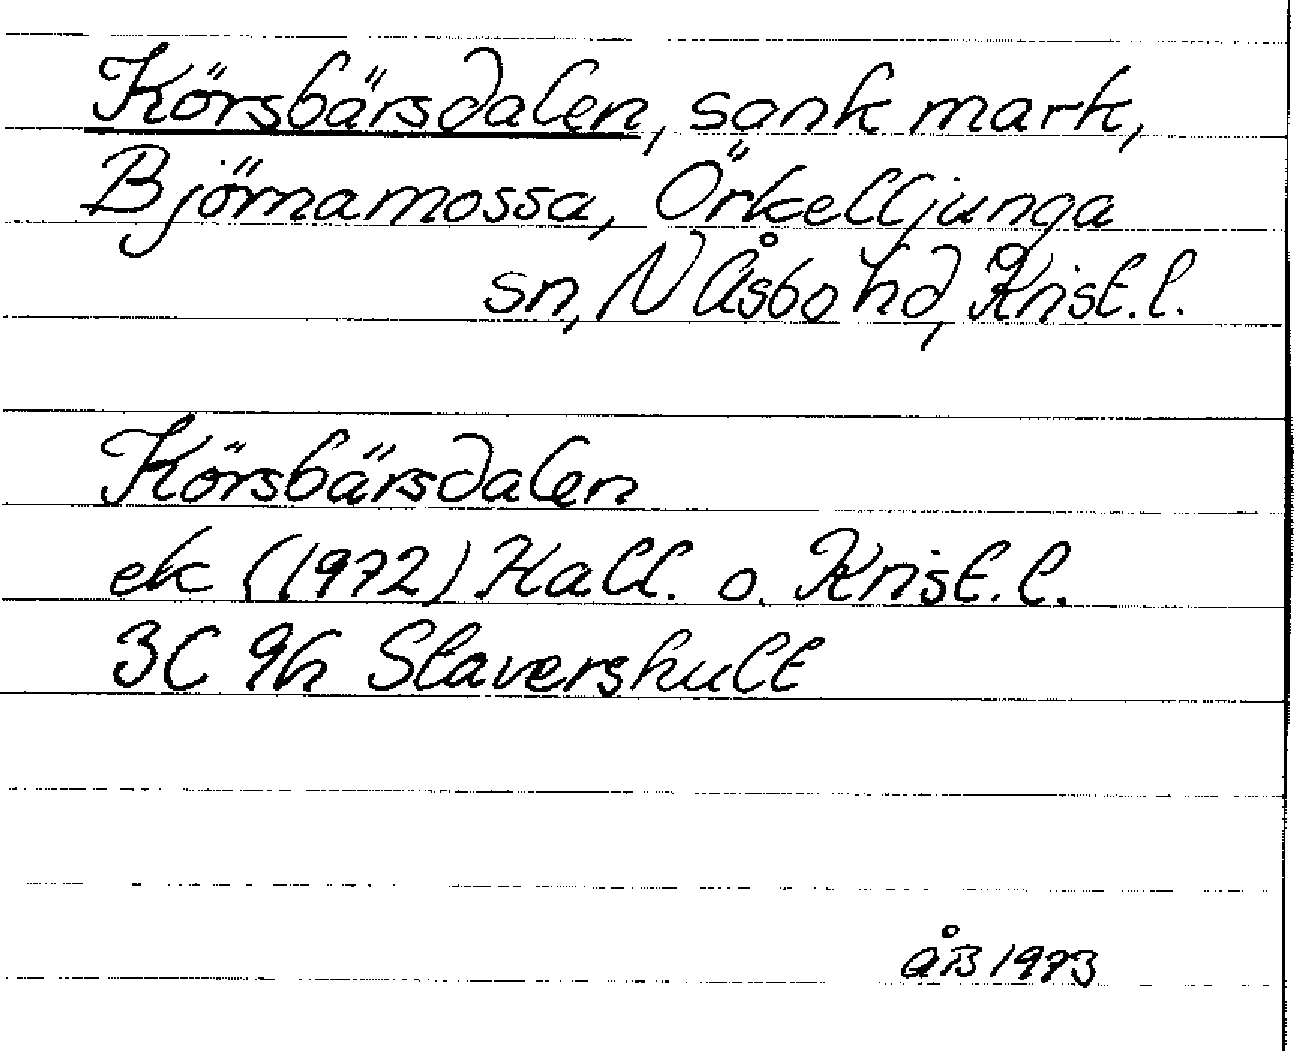 Körsbärsdalen, sank mark,
Björnamossa, Örkelljunga
sn, N Åsbo hd, Krist.l.
Körsbärsdalen
ek (1972) Hall. o. Krist.l.
3C 9h Stavershult
ÅB 1973